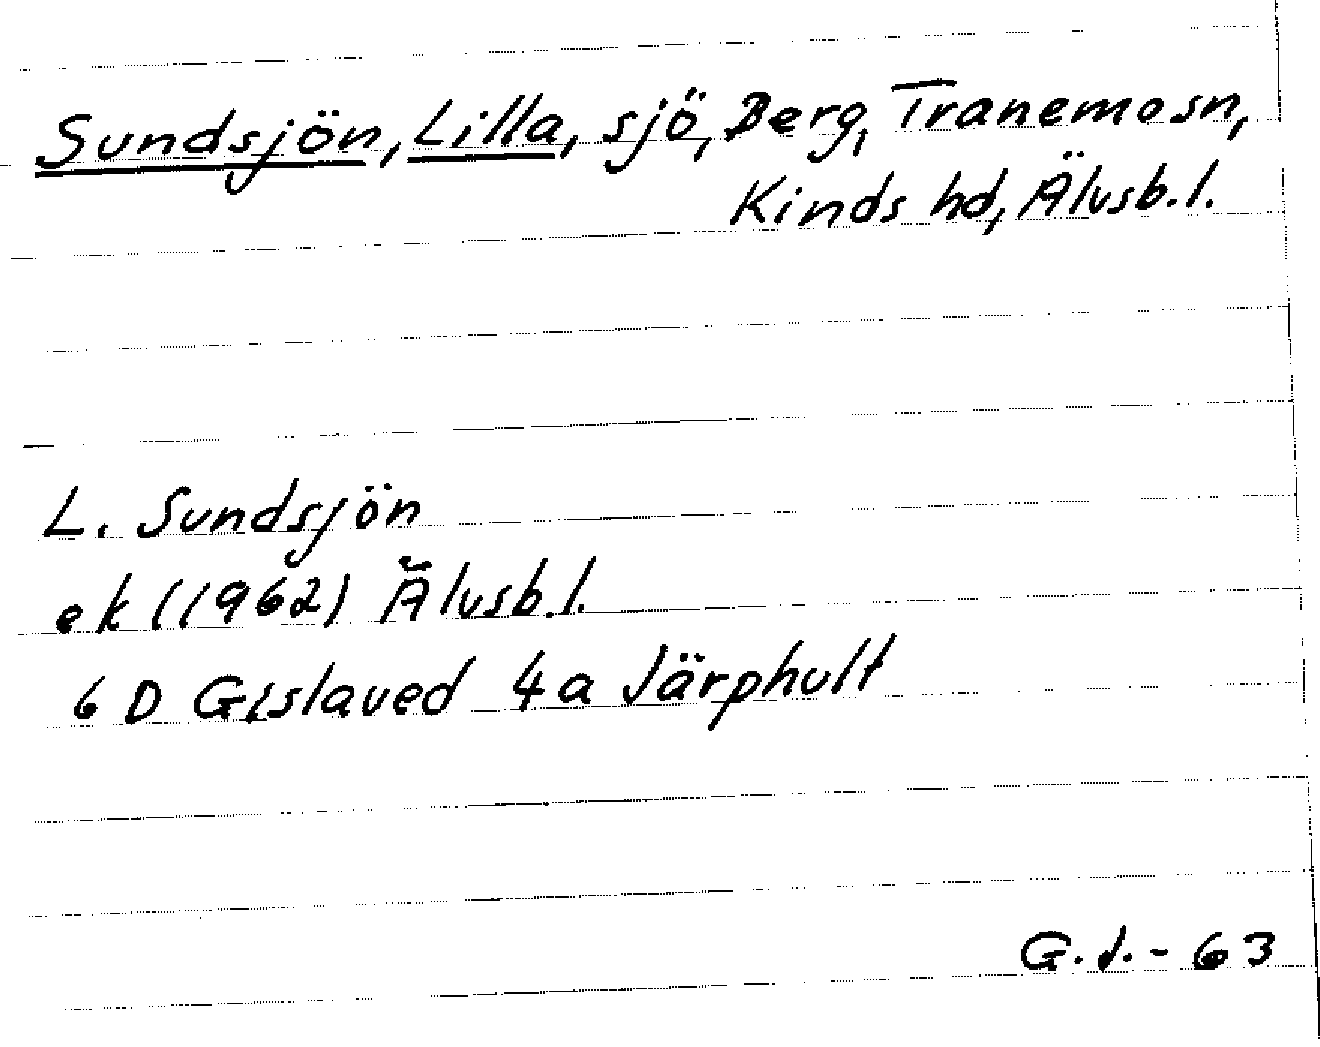 Sundsjön, Lilla, sjö, Berg, Tranemosn,
Kinds hd, Älvsb.l.
L. Sundsjön
ek (1962) Älvsb.l.
6 D Gislaved 4a Järphult
G.J.-63